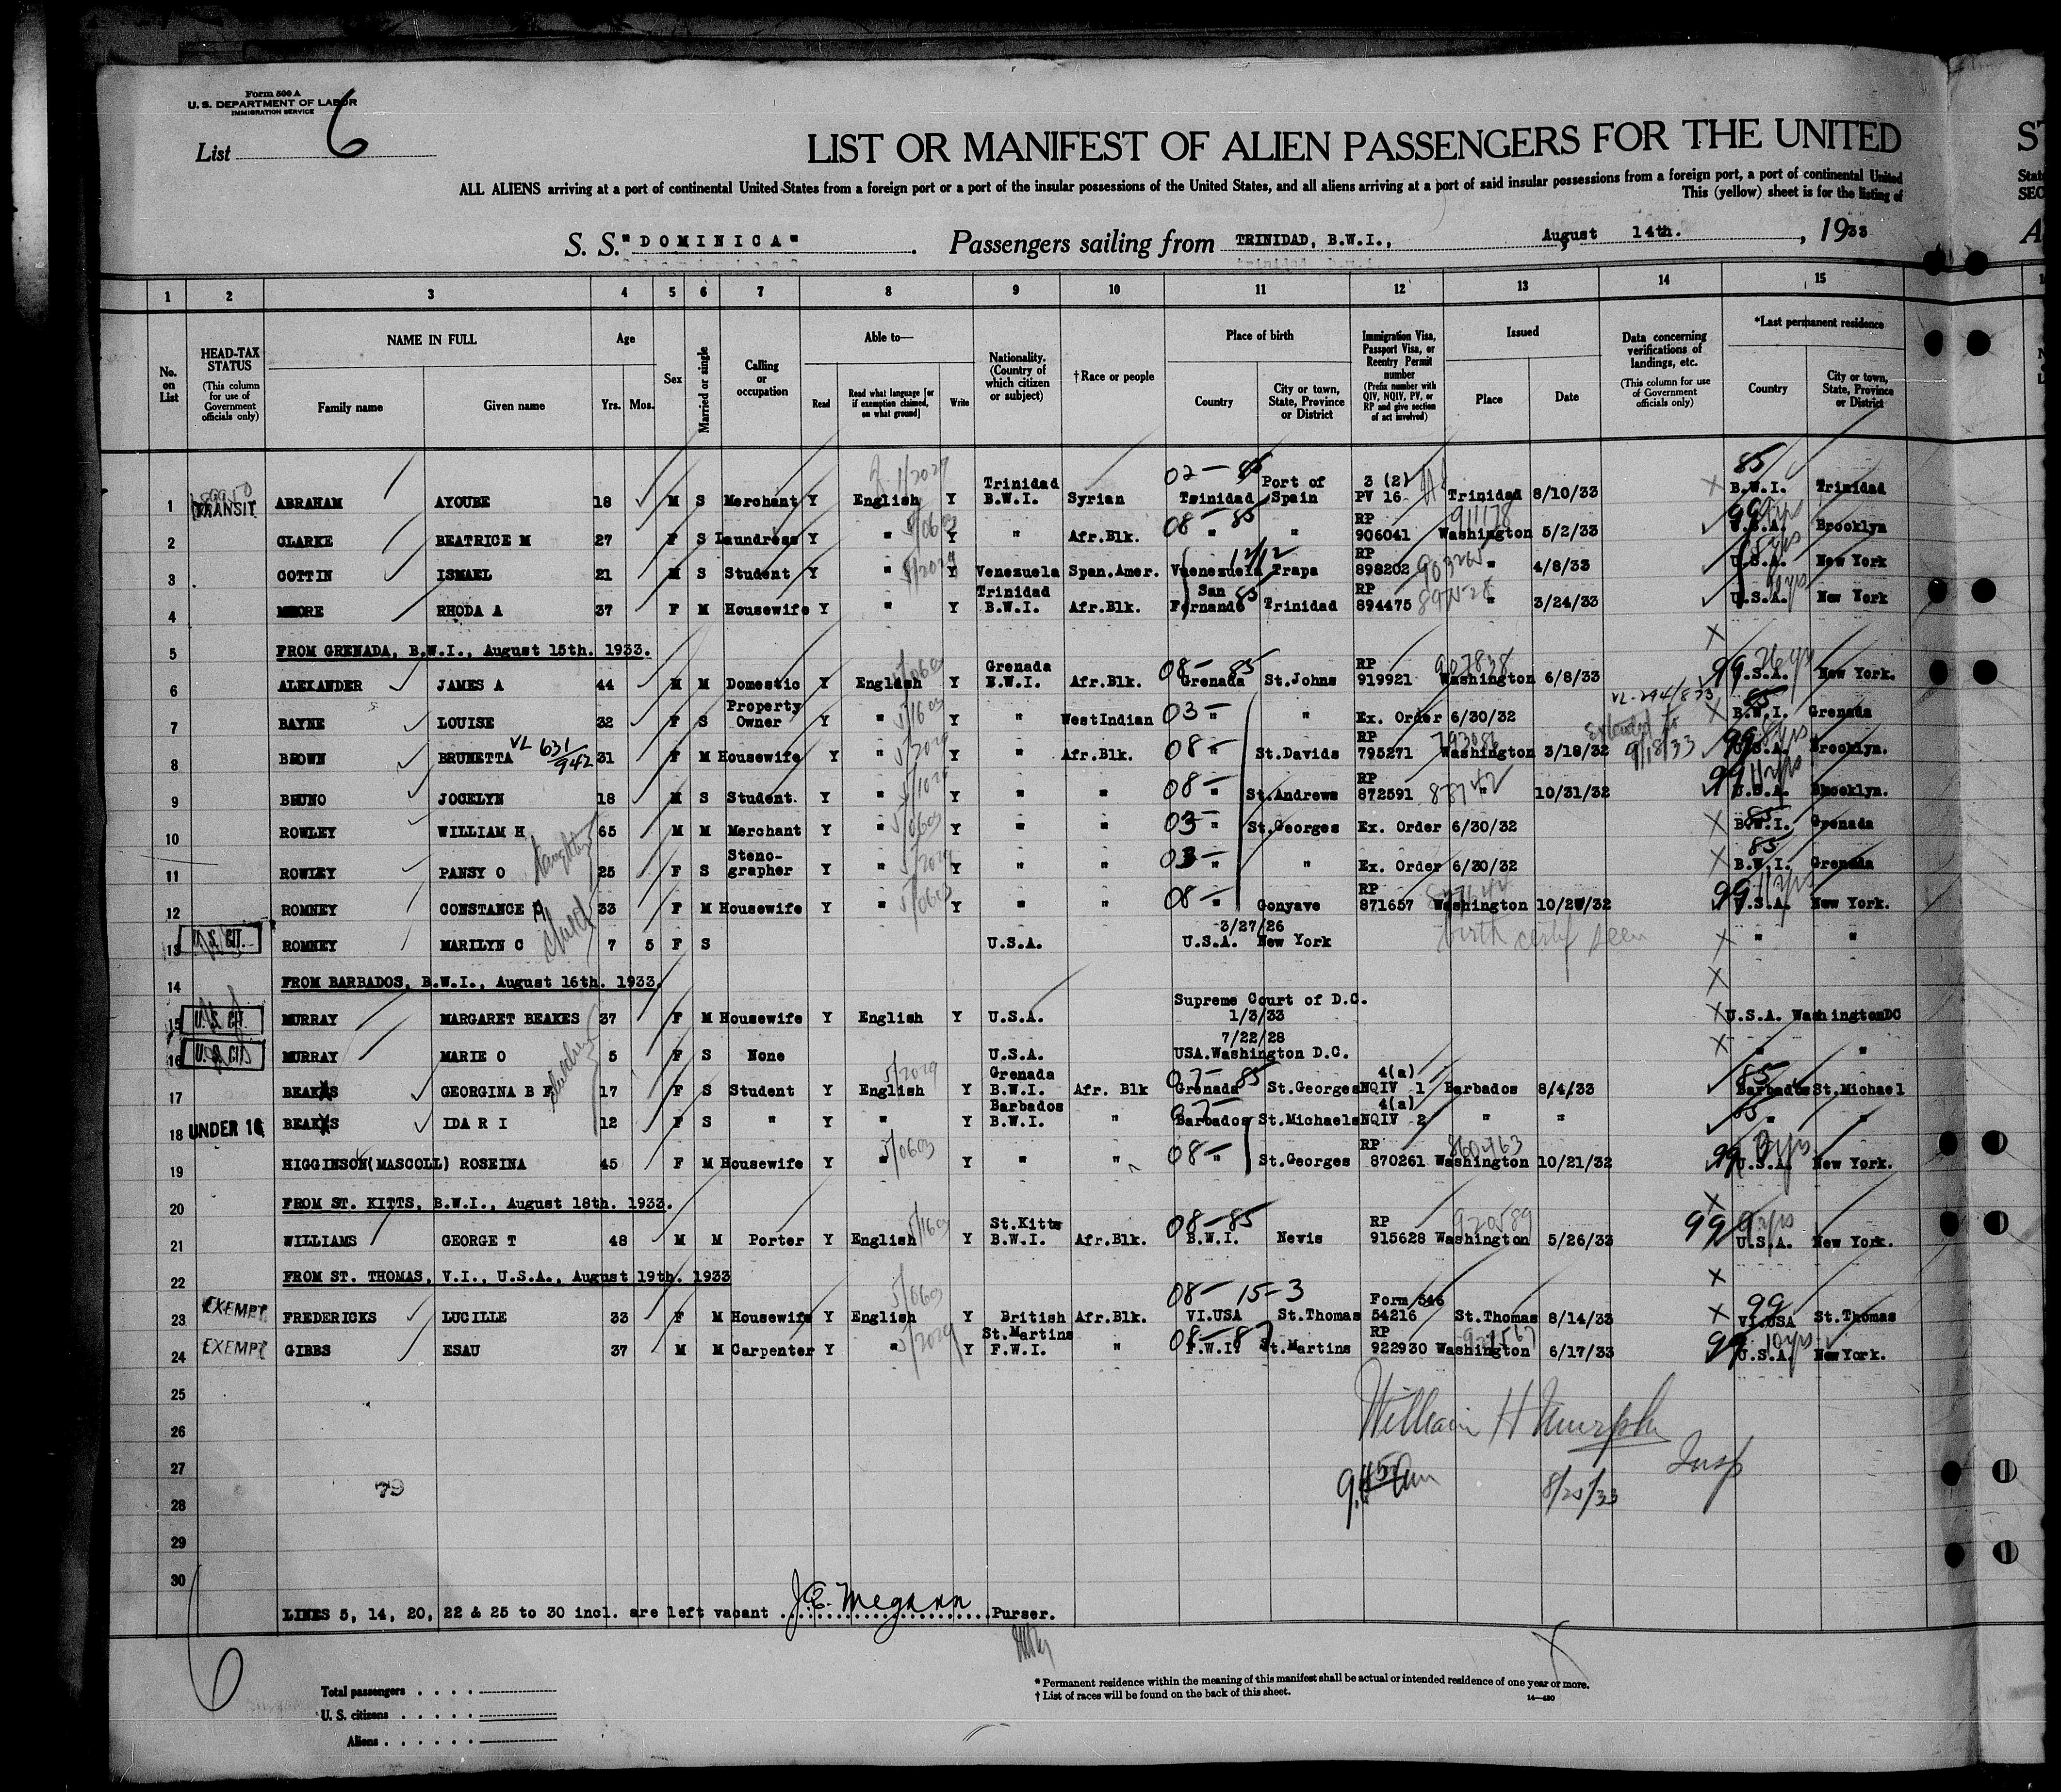 Form 500 A
U. S. DEPARTMENT OF LABOR
IMMIGRATION SERVICE
List 6
LIST OR MANIFEST OF ALIEN PASSENGERS FOR THE UNITED
ALL ALIENS arriving at a port of continental United States from a foreign port or a port of the insular possessions of the United States, and all aliens arriving at a port of said insular possessions from a foreign port, a port of continental United
This (yellow) sheet is for the listing of
S. S. "DOMINICA" . Passengers sailing from TRINIDAD, B.W.I., August 14th. , 1933
1 2 3 4 5 6 7 8 9 10 11 12 13 14 15
No. on List
HEAD-TAX STATUS (This column for use of Government officials only)
NAME IN FULL Family name Given name
Age Yrs. Mos.
Sex
Married or single
Calling or occupation
Able to— Read Read what language [or if exemption claimed, on what ground] Write
Nationality. (Country of which citizen or subject)
†Race or people
Place of birth Country City or town, State, Province or District
Immigration Visa, Passport Visa, or Reentry Permit number (Prefix number with QIV, NQIV, PV, or RP and give section of act involved)
Issued Place Date
Data concerning verifications of landings, etc. (This column for use of Government officials only)
*Last permanent residence Country City or town, State, Province or District
1 TRANSIT ABRAHAM AYOUBE 18 M S Merchant Y English Y Trinidad B.W.I. Syrian 02-85 Trinidad Port of Spain 3 (2) PV 16 Trinidad 8/10/33 85 B.W.I. Trinidad
2 CLARKE BEATRICE M 27 F S Laundress Y " Y " Afr.Blk. 08-85 " " RP 906041 911178 Washington 5/2/33 U.S.A. Brooklyn
3 COTTIN ISMAEL 21 M S Student Y " Y Venezuela Span.Amer. Vuenezuela Trapa RP 898202 " 4/8/33 U.S.A. New York
4 MOORE RHODA A 37 F M Housewife Y " Y Trinidad B.W.I. Afr.Blk. San Fernando Trinidad RP 894475 " 3/24/33 U.S.A. New York
5 FROM GRENADA, B.W.I., August 15th. 1933.
6 ALEXANDER JAMES A 44 M M Domestic Y English Y Grenada B.W.I. Afr.Blk. 08-85 Grenada St.Johns RP 919921 907838 Washington 6/8/33 99 U.S.A. New York.
7 BAYNE LOUISE 32 F S Property Owner Y " Y " WestIndian 03- " " Ex. Order 6/30/32 85 B.W.I. Grenada
8 BROWN BRUNETTA VL 631/942 31 F M Housewife Y " Y " Afr.Blk. 08- " St.Davids RP 795271 Washington 3/18/32 VL-294/873 Extended to 9/18/33 99 U.S.A. Brooklyn.
9 BRUNO JOCELYN 18 M S Student. Y " Y " " 08- " St.Andrews RP 872591 " 10/31/32 99 U.S.A. Brooklyn.
10 ROWLEY WILLIAM H 65 M M Merchant Y " Y " " 03- " St.Georges Ex. Order 6/30/32 85 B.W.I. Grenada
11 ROWLEY PANSY O daughter 25 F S Steno-grapher Y " Y " " 03- " " Ex. Order 6/30/32 85 B.W.I. Grenada
12 ROMNEY CONSTANCE A 33 F M Housewife Y " Y " " 08- " Gonyave RP 871657 Washington 10/28/32 99 U.S.A. New York.
13 U.S. CIT. ROMNEY MARILYN C child 7 5 F S U.S.A. 3/27/26 U.S.A. New York birth certif seen " "
14 FROM BARBADOS, B.W.I., August 16th. 1933.
15 U.S. CIT. MURRAY MARGARET BEAKES 37 F M Housewife Y English Y U.S.A. Supreme Court of D.C. 1/3/33 U.S.A. WashingtonDC
16 U.S. CIT. MURRAY MARIE O 5 F S None U.S.A. 7/22/28 USA.Washington D.C. " "
17 BEAKES GEORGINA B F 17 F S Student Y English Y Grenada B.W.I. Afr. Blk 07-85 Grenada St.Georges 4(a) NQIV 1 Barbados 8/4/33 85 Barbados St.Michael
18 UNDER 16 BEAKES IDA R I 12 F S " Y " Y Barbados B.W.I. " 07- Barbados St.Michaels 4(a) NQIV 2 " " 85 " "
19 HIGGINSON(MASCOLL) ROSEINA 45 F M Housewife Y " Y " " 08- " St.Georges RP 870261 Washington 10/21/32 99 U.S.A. New York.
20 FROM ST. KITTS, B.W.I., August 18th. 1933.
21 WILLIAMS GEORGE T 48 M M Porter Y English Y St.Kitts B.W.I. Afr.Blk. 08-85 B.W.I. Nevis RP 915628 920589 Washington 5/26/33 99 U.S.A. New York.
22 FROM ST. THOMAS, V.I., U.S.A., August 19th. 1933
23 EXEMPT FREDERICKS LUCILLE 33 F M Housewife Y English Y British Afr.Blk. 08-15-3 VI.USA St.Thomas Form 546 54216 St.Thomas 8/14/33 99 VI.USA St.Thomas
24 EXEMPT GIBBS ESAU 37 M M Carpenter Y " Y St.Martins F.W.I. " 08-87 F.W.I. St.Martins RP 922930 Washington 6/17/33 99 10yrs U.S.A. NewYork.
25
26 William H Murphy
27 Insp
28 79 9.45am 8/20/33
29
30
LINES 5, 14, 20, 22 & 25 to 30 incl. are left vacant J.E. Megann Purser.
6
Total passengers
U. S. citizens
Aliens
* Permanent residence within the meaning of this manifest shall be actual or intended residence of one year or more.
† List of races will be found on the back of this sheet.
14—430